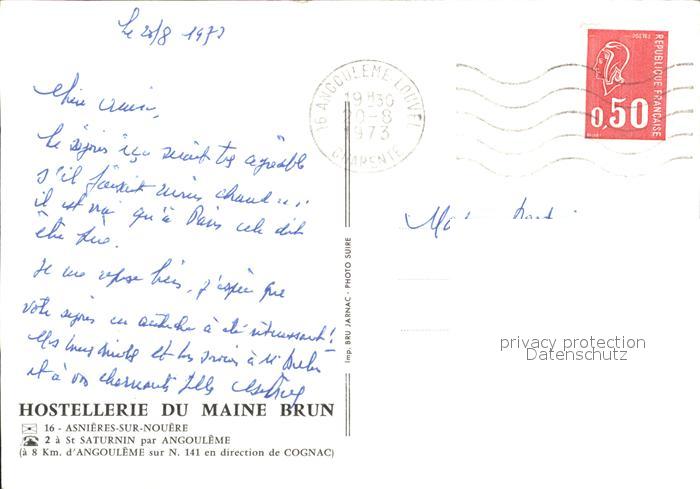 Le 20/8 1973
16 ANGOULEME-LOUVEL
19H30
20-8
1973
CHARENTE
POSTES
REPUBLIQUE FRANÇAISE
0,50
Chère
Le séjour ici serait très agréable
s'il faisait moins chaud...
il est vrai qu'à Paris cela doit
être pire.
Je me repose bien, j'espère que
votre séjour en a été intéressant!
Mes et à Mr
et à vos charmantes filles
Imp. BRU JARNAC - PHOTO SUIRE
HOSTELLERIE DU MAINE BRUN
16 - ASNIÈRES-SUR-NOUÈRE
2 à St SATURNIN par ANGOULÊME
(à 8 Km. d'ANGOULÊME sur N. 141 en direction de COGNAC)
privacy protection
Datenschutz